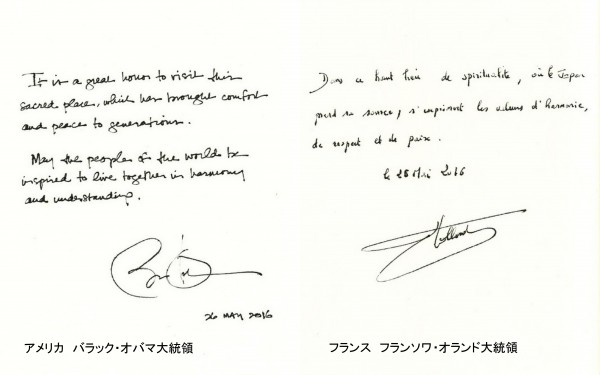 It is a great honor to visit this
sacred place, which has brought comfort
and peace to generations.
May the peoples of the world be
inspired to live together in harmony
and understanding.
26 MAY 2016
アメリカ　バラック・オバマ大統領
Dans ce haut lieu de spiritualité, où le Japon
prend sa source, s'expriment les valeurs d'harmonie,
de respect et de paix.
le 26 Mai 2016
フランス　フランソワ・オランド大統領